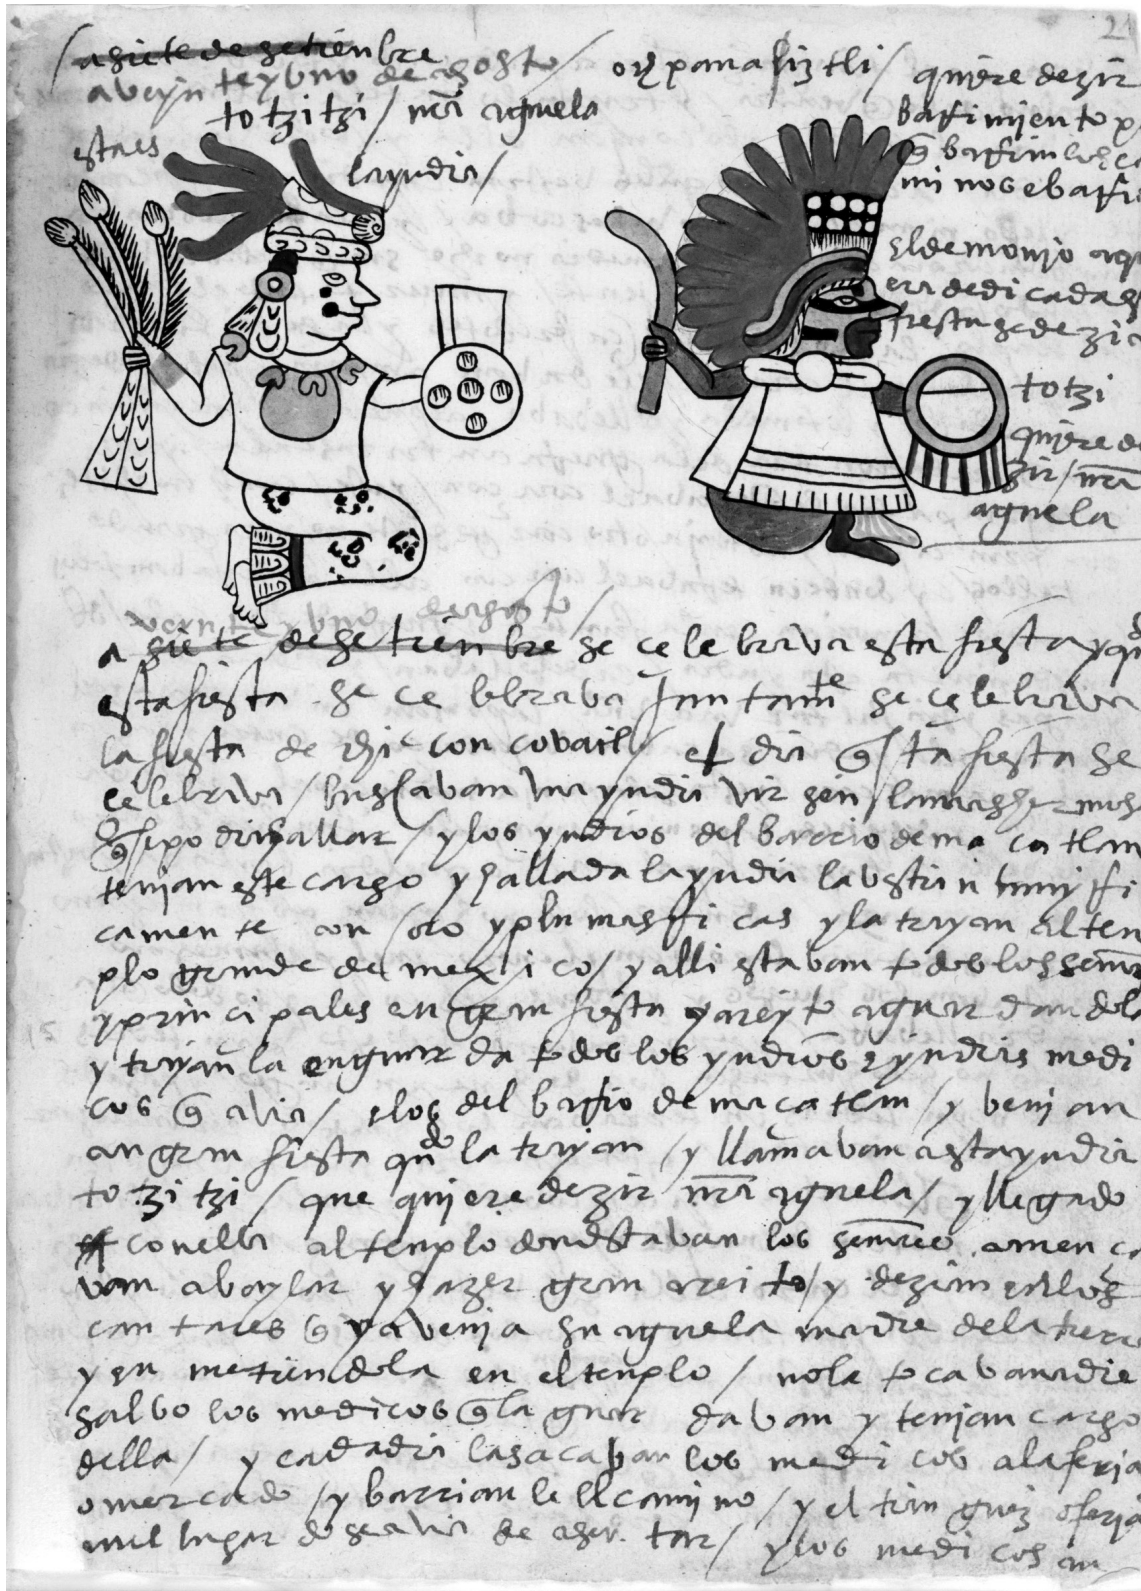 2
a siete de setienbre
a veyn te y uno de agosto
totzitzi / nr̄a aguela
esta es
la yndia /
ochpanaliztli / quiere dezir
barrimiento p
q̄ barrian los ca
mi nos e barri
el demonio aqu
era dedicada es
fiesta se dezia
totzi
quiere de
zir / nr̄a
aguela
veynte y uno de agosto /
a siete de setienbre se çelebrava esta fiesta y qn
esta fiesta se çelebrava juntamēte se çelebrava
la fiesta de chicon covatl / el dia q̄sta fiesta se
celebrava / buscavan una yndia virgen la mas hermosa
q̄ se podia hallar / y los yndios del barrio de maçatlan
tenian este cargo y hallada la yndia la vestian muy rri
camente con oro y plumas rricas y la trayan al ten
plo grande de mexico / y alli estavan todos los señor
y principales en gran fiesta y areyto aguardandola
y trayanla en guarda todos los yndios e yndias medi
cos q̄ avia / e los del barrio de maçatlan / y venian
en gran fiesta qndo la trayan / y llamavan a esta yndia
totzitzi / que quiere dezir nr̄a aguela / y llegado
con ella al tenplo dondestavan los señores, comença
van a baylar y hazer gran areito / y dezian en los
cantares q̄ ya venia su aguela madre de la tierra
y en metiendola en el tenplo / no la tocava nadie
salvo los medicos q̄ la guardavan y tenian cargo
della / y cada dia la sacaban los medicos a la feria
o mercado / y barrianle el camino / y el tianguiz o feria
en el lugar do se avia de asentar / y los medicos an